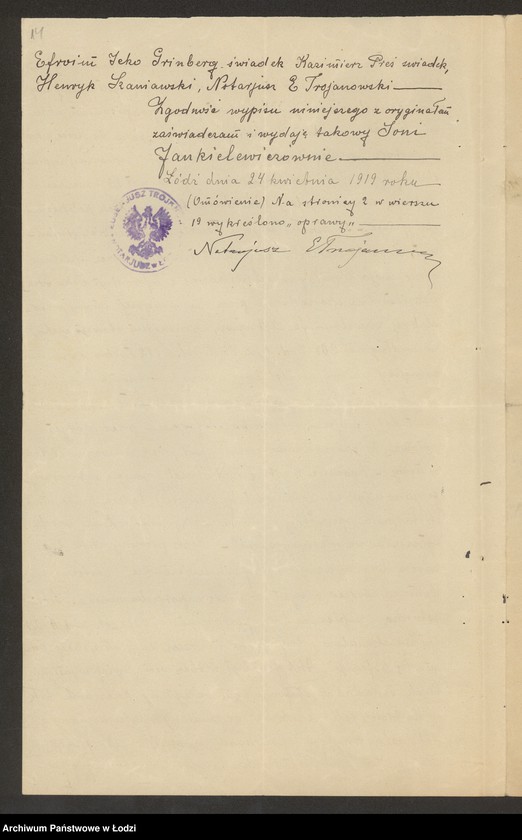 14
Efroim Icko Grinberg świadek Kazimierz Pieś świadek,
Henryk Szaniawski, Notarjusz E Trojanowski
Zgodność wypisu niniejszego z oryginałem
zaświadczam i wydaję takowy Soni
Jankielewiczównie.
Łódź dnia 24 kwietnia 1919 roku
(Omówienie) Na stronicy 2 w wierszu
19 wykreślono „oprawy„
Notarjusz E Trojanowski
Archiwum Państwowe w Łodzi